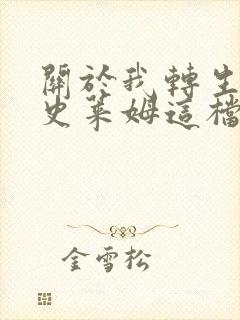 關於我轉生
史萊姆這檔
金雪松